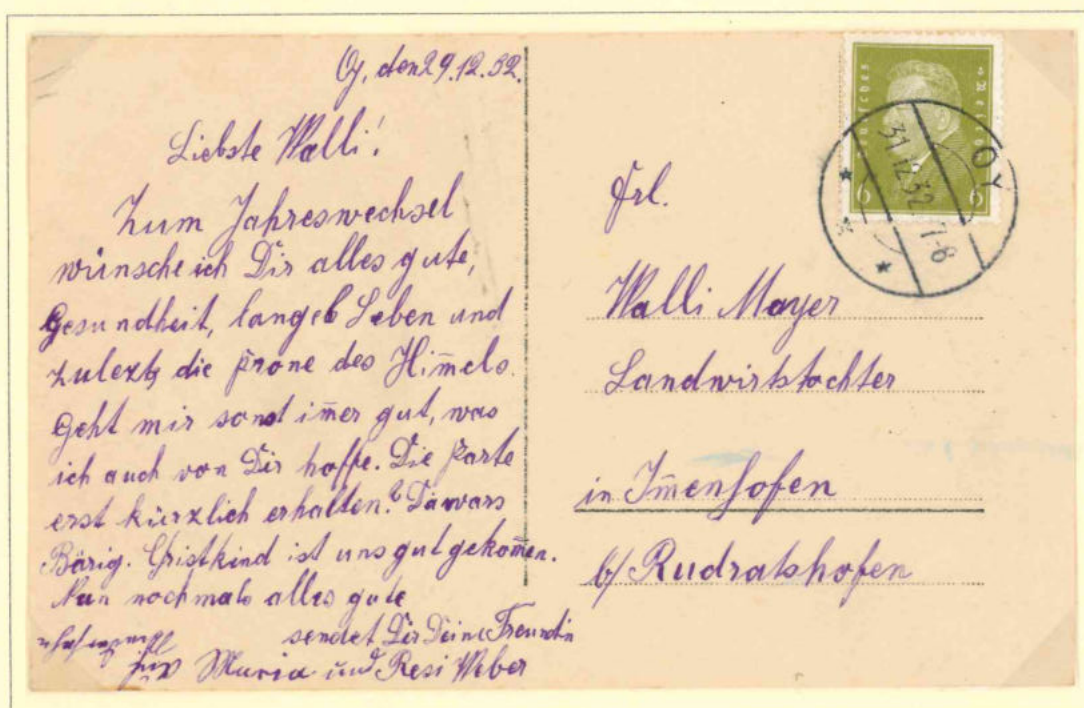 Oy, den 29.12.32.
Liebste Walli!
Zum Jahreswechsel
wünsche ich Dir alles gute,
Gesundheit, langes Leben und
zulezt, die Krone des Him̅els.
Geht mir sonst im̅er gut, was
ich auch von Dir hoffe. Die Karte
erst kürzlich erhalten? Da wars
Bärig. Christkind ist uns gut gekom̅en.
Nun nochmals alles gute
sendet Dir Deine Freundin
Maria und Resi Weber
Deutsches Reich
6 6
OY
31.12.32. 7-8
Frl.
Walli Mayer
Landwirtstochter
in Im̅enhofen
b/ Rudratshofen